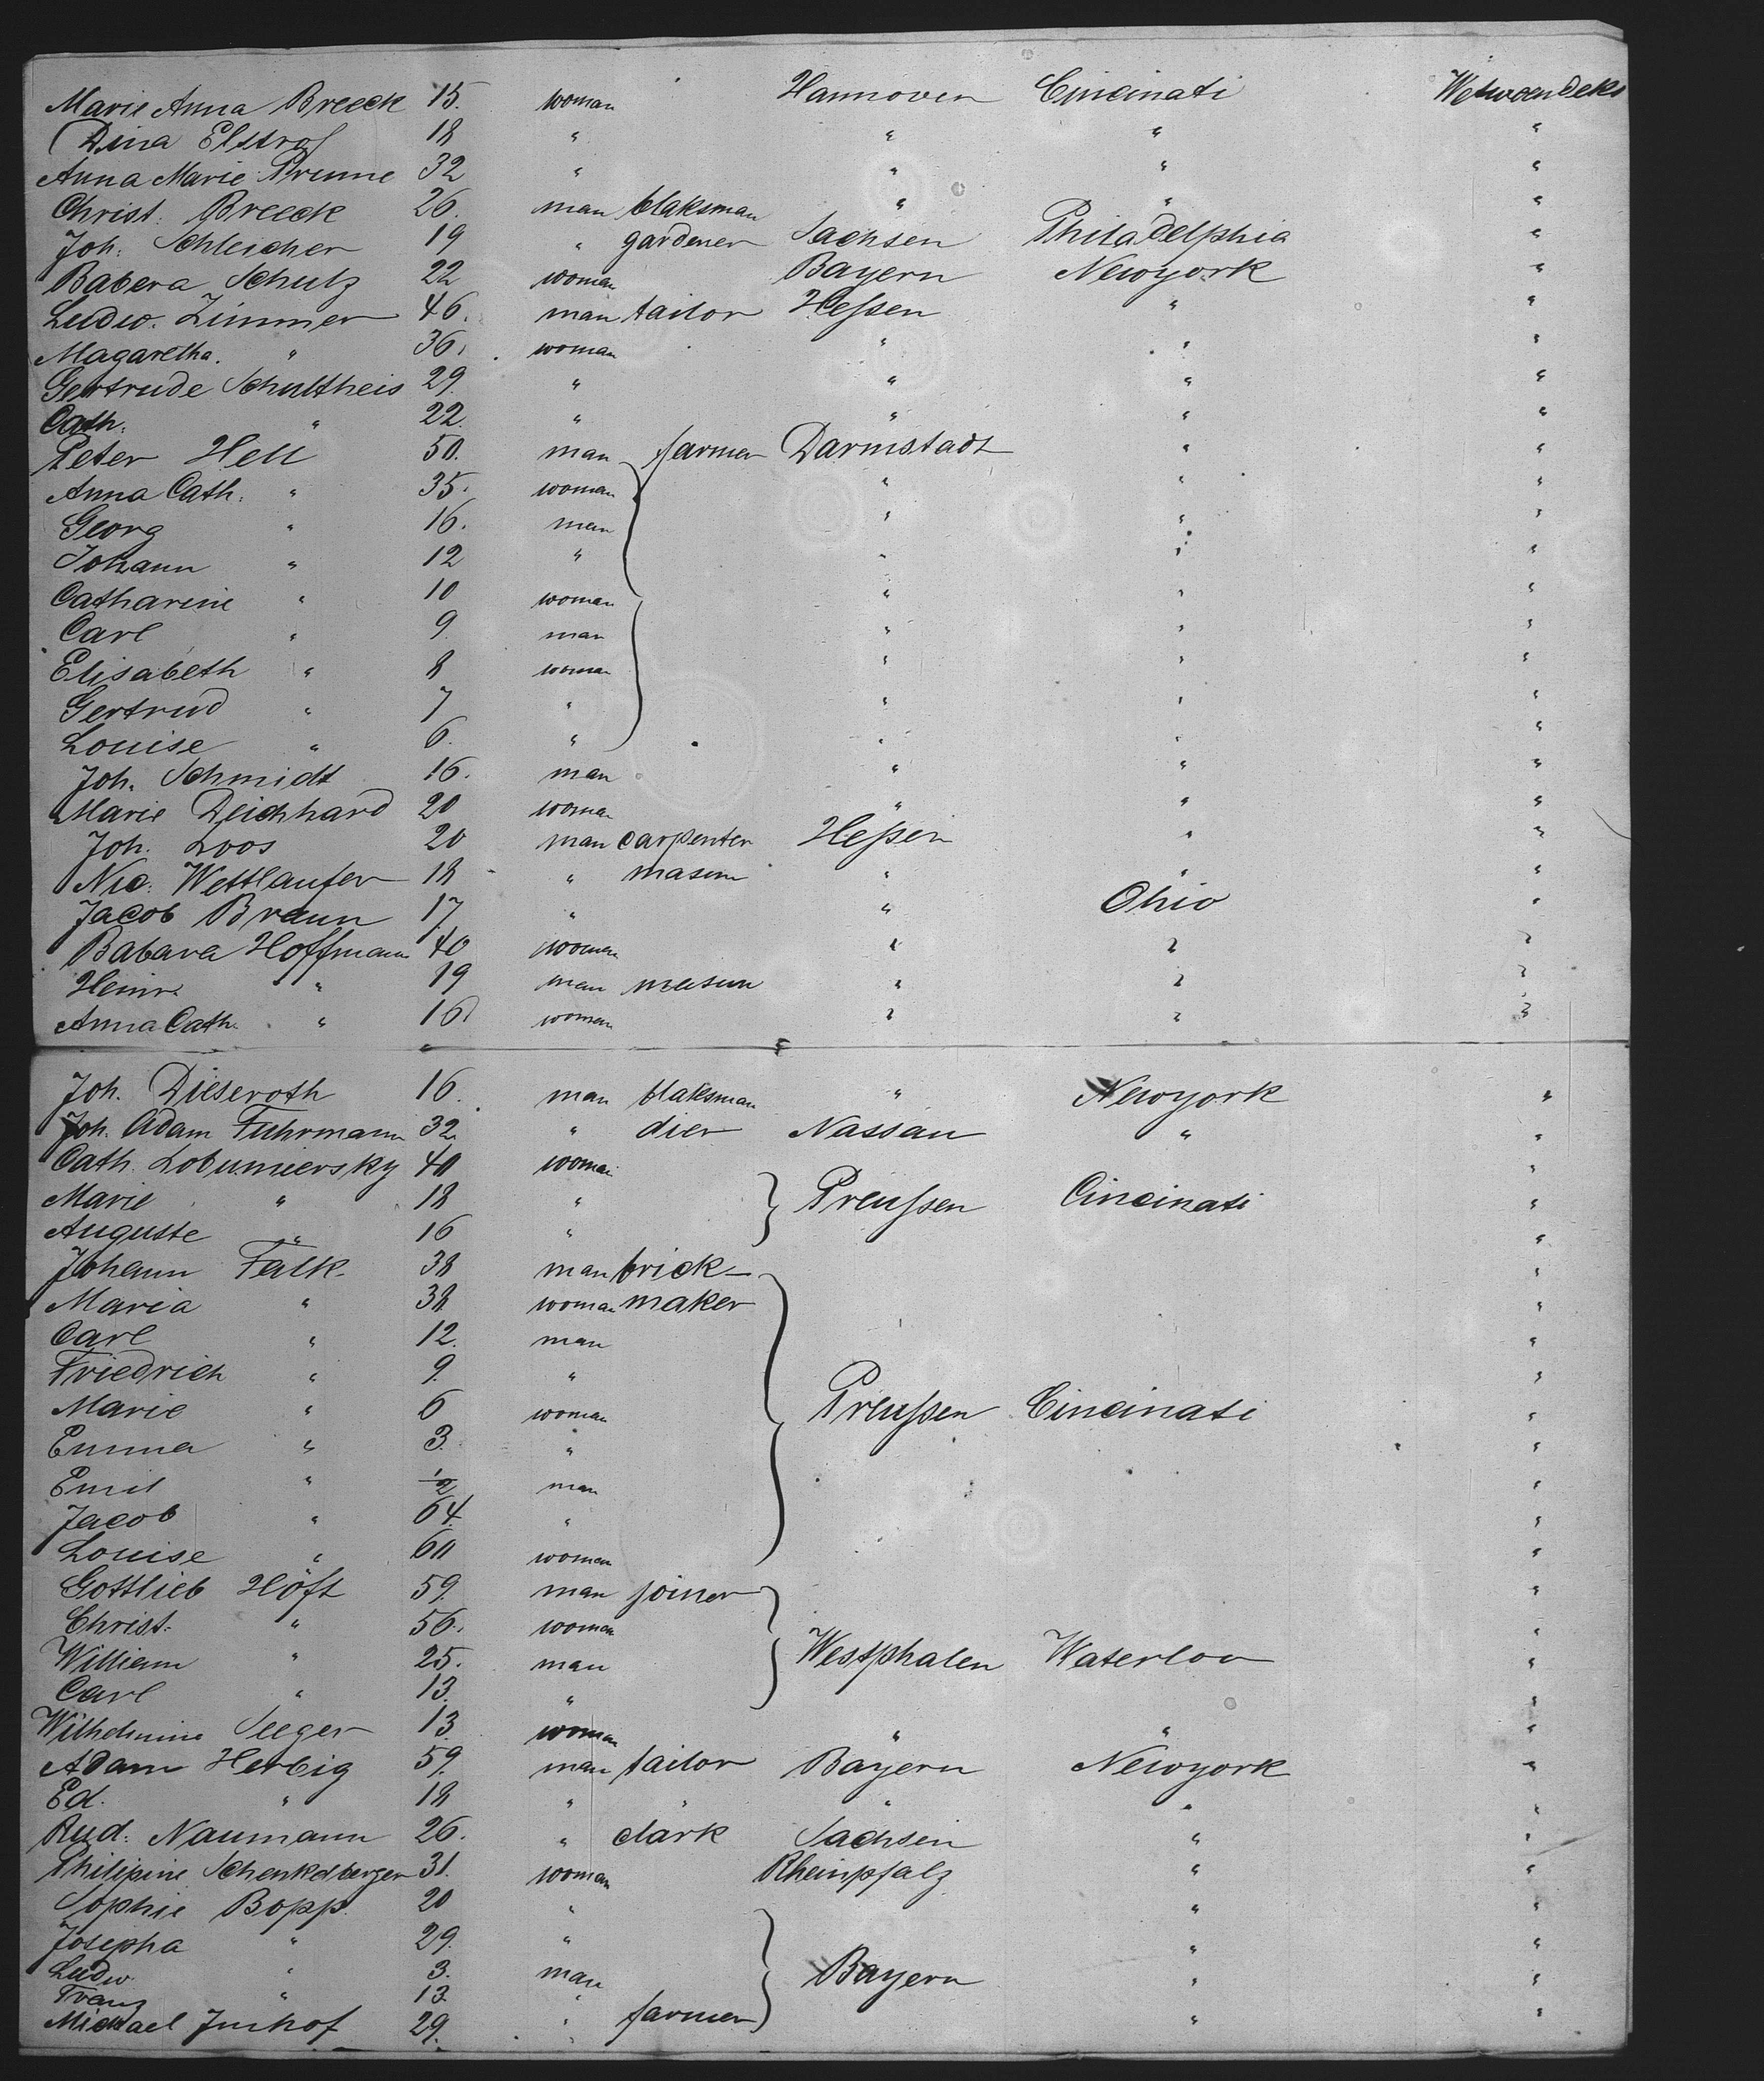 Marie Anna Breeck 15. woman Hannover Cincinati
Dina Elstrof 18 " " " "
Anna Marie 32 " " " "
Christ. Breeck 26. man blaksman " " "
Joh. Schleicher 19 " gardener Sachsen Philadelphia "
Babera Schulz 22 woman Bayern Newyork "
Ludw. Zimmer 46. man tailor Heſsen " "
Magaretha. " 36. woman " " "
Gertrude Schultheis 29. " " " "
Cath. " 22. " " " "
Peter Hell 50. man farmer Darmstadt " "
Anna Cath. " 35. woman " " "
Georg " 16. man " " "
Johann " 12 " " " "
Catharine " 10 woman " " "
Carl " 9 man " " "
Elisabeth " 8 woman " " "
Gertrud " 7 " " " "
Louise " 6. " " " "
Joh. Schmidt 16. man " " "
Marie Deichhard 20 woman " " "
Joh. Loos 20 man carpenter Heſsen " "
Nic. Wettlaufer 18 " masun " " "
Jacob Braun 17. " " Ohio "
Babara Hoffmann 40 woman " " "
Heinr. " 19 man masun " " "
Anna Cath. " 16 woman " " "
Joh. Dieseroth 16. man blaksman " Newyork "
Joh. Adam Fuhrmann 32. " dier Nassau " "
Cath. Lobumiersky 40 woman "
Marie " 18 " Preuſsen Cincinati "
Auguste " 16 " "
Johann Falk 38 man brick- "
Maria " 38 woman maker "
Carl " 12. man "
Friedrich " 9. " "
Marie " 6 woman Preuſsen Cincinati "
Emma " 3. " "
Emil " ½ man "
Jacob " 64. " "
Louise " 60 woman "
Gottlieb Höft 59. man joiner "
Christ. " 56. woman "
William " 25. man Westphalen Waterloo "
Carl " 13. " "
Wilhelmine Seeger 13. woman " " "
Adam Herbig 59. man tailor Bayern Newyork "
Ed. " 18 " " " " "
Rud. Naumann 26. " clark Sachsen " "
Philipine Schenkelberger 31. woman Rheinpfalz " "
Sophie Bopp. 20 " " "
Josepha " 29. " " "
Ludw. " 3. man Bayern " "
Franz " 13. "
Michael Imhof 29. " farmer " "